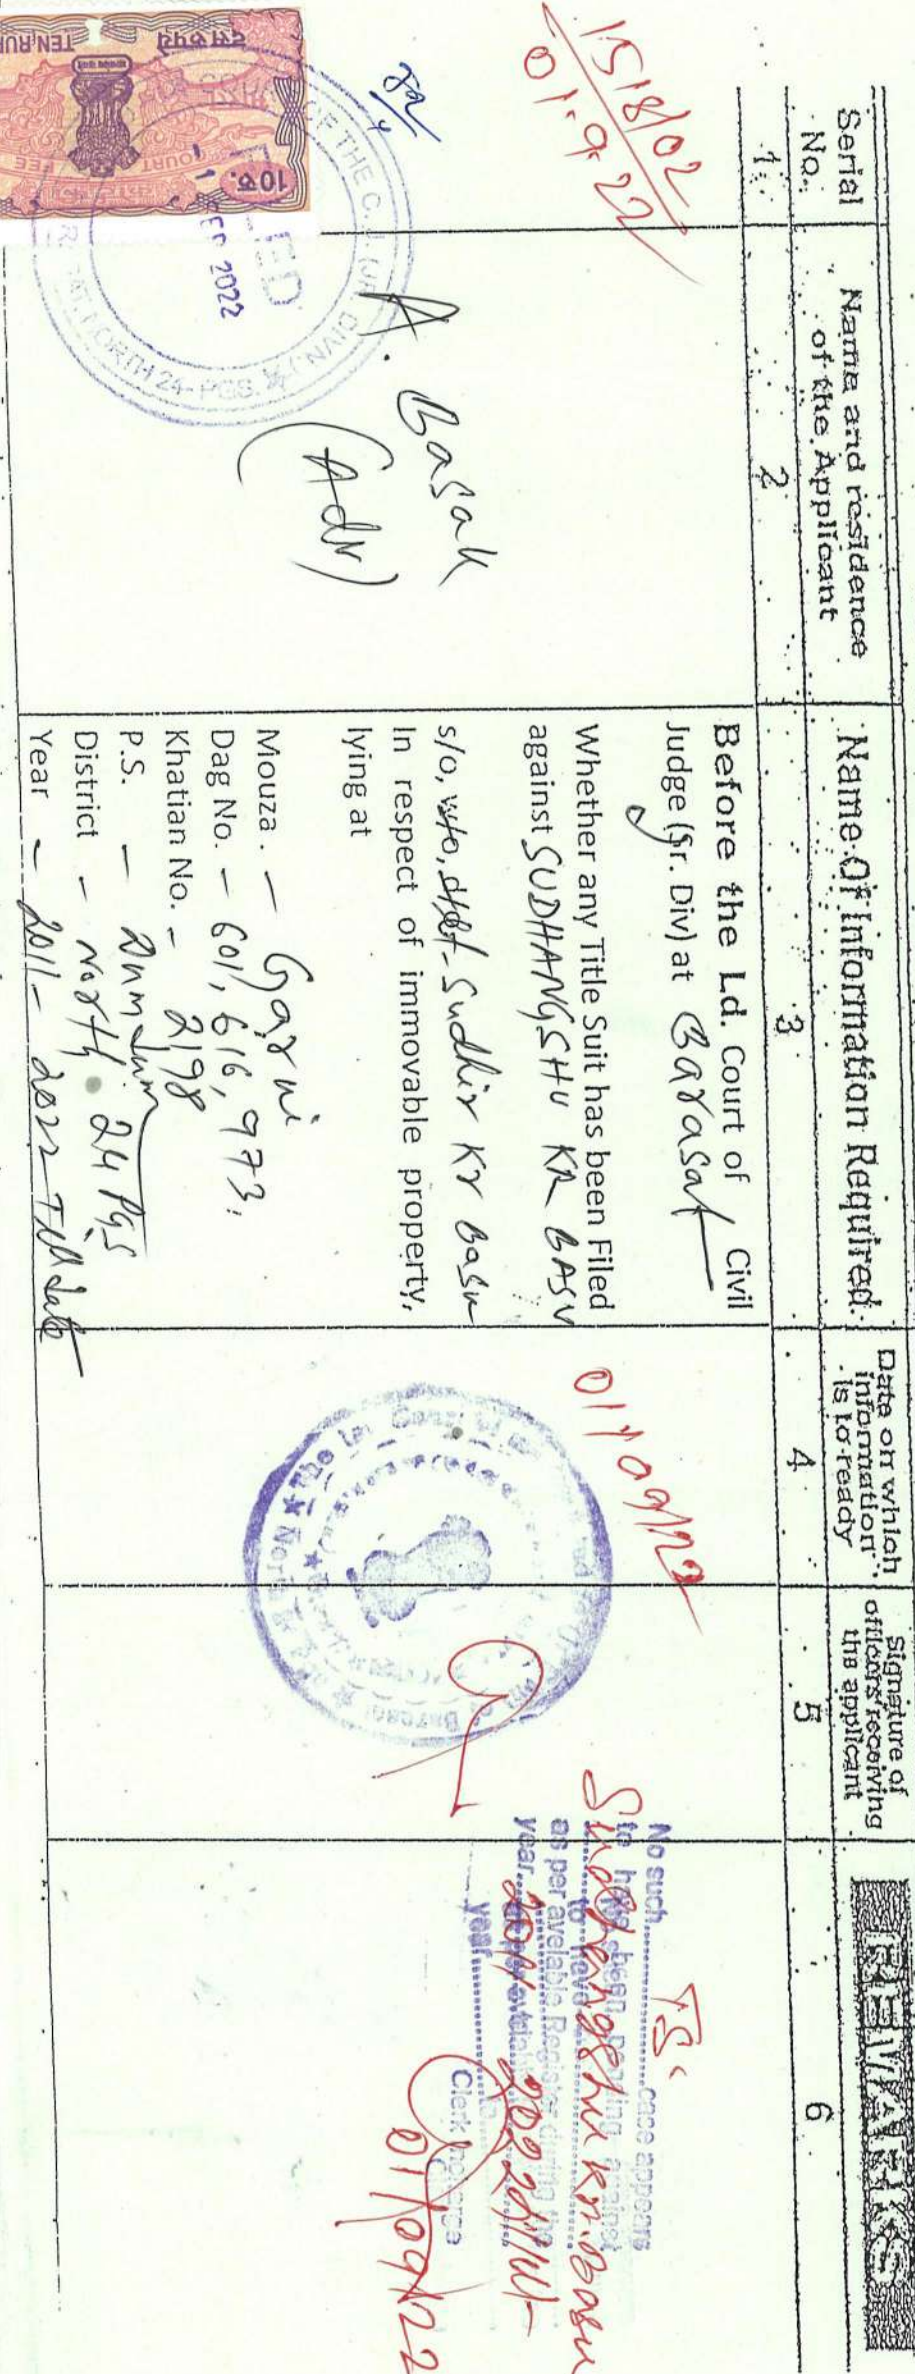 15181/02
01.9.22
Serial No.
Name and residence of the Applicant
Name Of Information Required.
Date on which information is to ready
Signature of officers receiving the applicant
REMARKS
1
2
3
4
5
6
A. Basak
(Adv)
Before the Ld. Court of Civil
Judge (Jr. Div) at Barasat
Whether any Title Suit has been Filed
against SUDHANGSHU KR BASU
s/o, w/o, d/of - Sudhir Kr Basu
In respect of immovable property,
lying at
Mouza. - Garui
Dag No. - 601, 616, 973,
Khatian No. - 2198
P.S. - Dum Dum
District - North 24 Pgs
Year - 2011 - 2022 Till date
01/09/22
No such TS. case appears
to have been pending against
Sudhangshu Kr. Basu
as per avelable Register during the
year 2011 2022 till
Clerk Incharge
01/09/22
TEN RUP
दस रुपये
COURT FEE
10 रु.
FILED
1 SEP 2022
OF THE C. J. (JR. DIVN.)
NORTH 24-PGS.